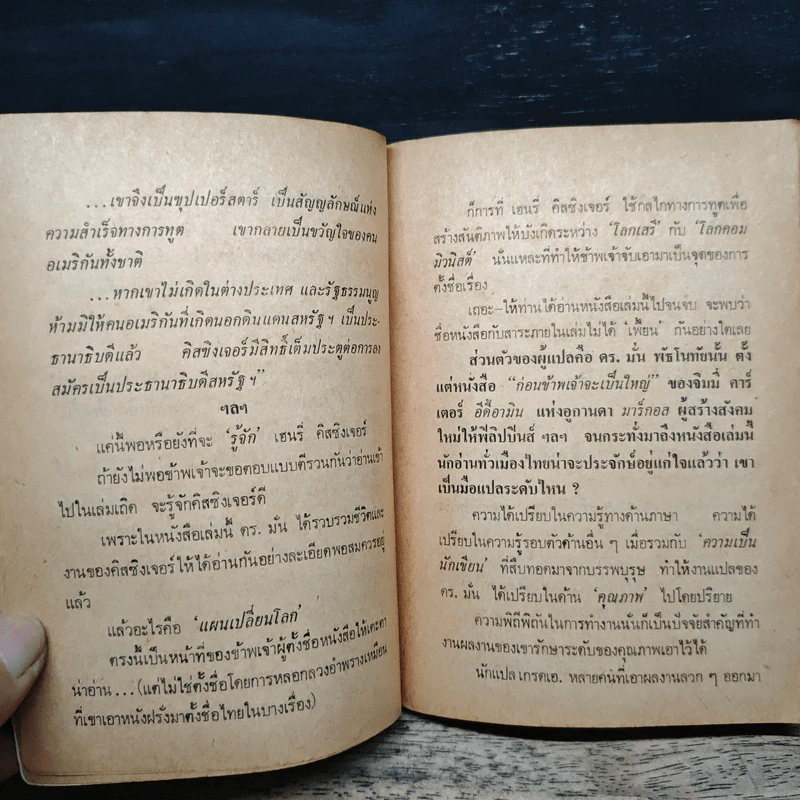 ...เขาจึงเป็นซุปเปอร์สตาร์ เป็นสัญญลักษณ์แห่ง
ความสำเร็จทางการทูต เขากลายเป็นขวัญใจของคน
อเมริกันทั้งชาติ
...หากเขาไม่เกิดในต่างประเทศ และรัฐธรรมนูญ
ห้ามมิให้คนอเมริกันที่เกิดนอกดินแดนสหรัฐฯ เป็นประ-
ธานาธิบดีแล้ว คิสซิงเจอร์มีสิทธิ์เต็มประตูต่อการลง
สมัครเป็นประธานาธิบดีสหรัฐฯ"
ฯลฯ
แค่นี้พอหรือยังที่จะ 'รู้จัก' เฮนรี่ คิสซิงเจอร์
ถ้ายังไม่พอข้าพเจ้าจะขอตอบแบบตีรวนกันว่าอ่านเข้า
ไปในเล่มเถิด จะรู้จักคิสซิงเจอร์ดี
เพราะในหนังสือเล่มนี้ ดร. มั่น ได้รวบรวมชีวิตและ
งานของคิสซิงเจอร์ให้ได้อ่านกันอย่างละเอียดพอสมควรอยู่
แล้ว
แล้วอะไรคือ 'แผนเปลี่ยนโลก'
ตรงนี้เป็นหน้าที่ของข้าพเจ้าผู้ตั้งชื่อหนังสือให้เตะตา
น่าอ่าน...(แต่ไม่ใช่ตั้งชื่อโดยการหลอกลวงอำพรางเหมือน
ที่เขาเอาหนังฝรั่งมาตั้งชื่อไทยในบางเรื่อง)
ก็การที่ เฮนรี่ คิสซิงเจอร์ ใช้กลไกทางการทูตเพื่อ
สร้างสันติภาพให้บังเกิดระหว่าง 'โลกเสรี' กับ 'โลกคอม
มิวนิสต์' นั่นแหละที่ทำให้ข้าพเจ้าจับเอามาเป็นจุดของการ
ตั้งชื่อเรื่อง
เถอะ-ให้ท่านได้อ่านหนังสือเล่มนี้ไปจนจบ จะพบว่า
ชื่อหนังสือกับสาระภายในเล่มไม่ได้ 'เพี้ยน' กันอย่างใดเลย
ส่วนตัวของผู้แปลคือ ดร. มั่น พัธโนทัยนั้น ตั้ง
แต่หนังสือ "ก่อนข้าพเจ้าจะเป็นใหญ่" ของจิมมี่ คาร์
เตอร์ อีดี้อามิน แห่งอูกานดา มาร์กอส ผู้สร้างสังคม
ใหม่ให้ฟิลิปปินส์ ฯลฯ จนกระทั่งมาถึงหนังสือเล่มนี้
นักอ่านทั่วเมืองไทยน่าจะประจักษ์อยู่แก่ใจแล้วว่า เขา
เป็นมือแปลระดับไหน ?
ความได้เปรียบในความรู้ทางด้านภาษา ความได้
เปรียบในความรู้รอบตัวด้านอื่น ๆ เมื่อรวมกับ 'ความเป็น
นักเขียน' ที่สืบทอดมาจากบรรพบุรุษ ทำให้งานแปลของ
ดร. มั่น ได้เปรียบในด้าน 'คุณภาพ' ไปโดยปริยาย
ความพิถีพิถันในการทำงานนั่นก็เป็นปัจจัยสำคัญที่ทำ
งานผลงานของเขารักษาระดับของคุณภาพเอาไว้ได้
นักแปล เกรดเอ. หลายคนที่เอาผลงานลวก ๆ ออกมา